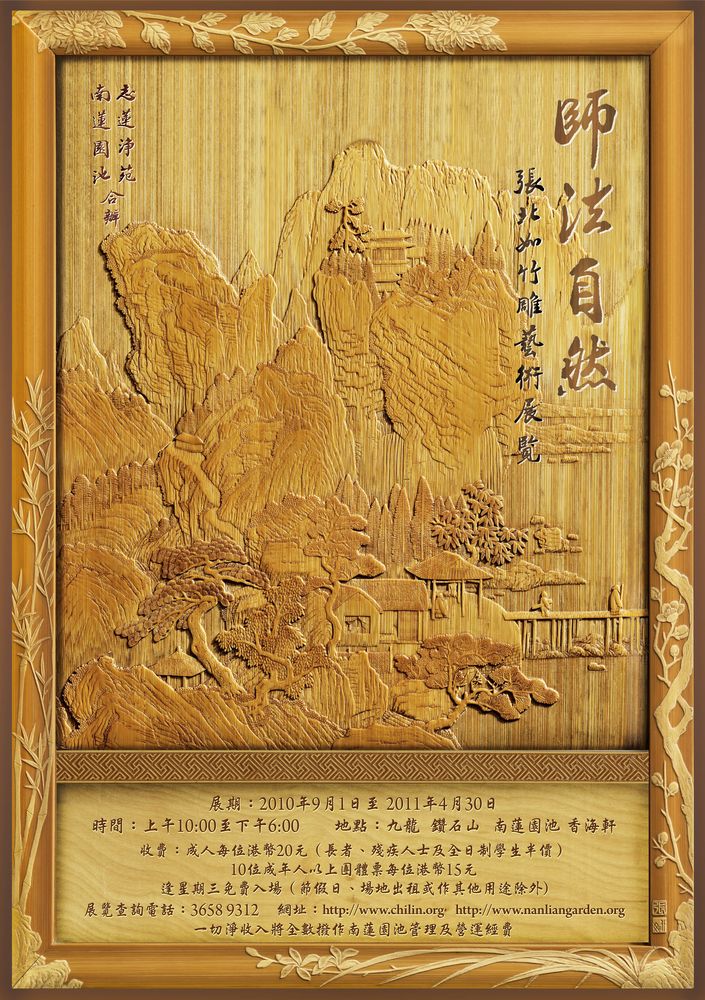 師法自然
張北如竹雕藝術展覽
志蓮淨苑
南蓮園池合辦
展期：2010年9月1日至2011年4月30日
時間：上午10:00至下午6:00 地點：九龍 鑽石山 南蓮園池 香海軒
收費：成人每位港幣20元（長者、殘疾人士及全日制學生半價）
10位成年人以上團體票每位港幣15元
逢星期三免費入場（節假日、場地出租或作其他用途除外）
展覽查詢電話：3658 9312 網址：http://www.chilin.org http://www.nanliangarden.org
一切淨收入將全數撥作南蓮園池管理及營運經費